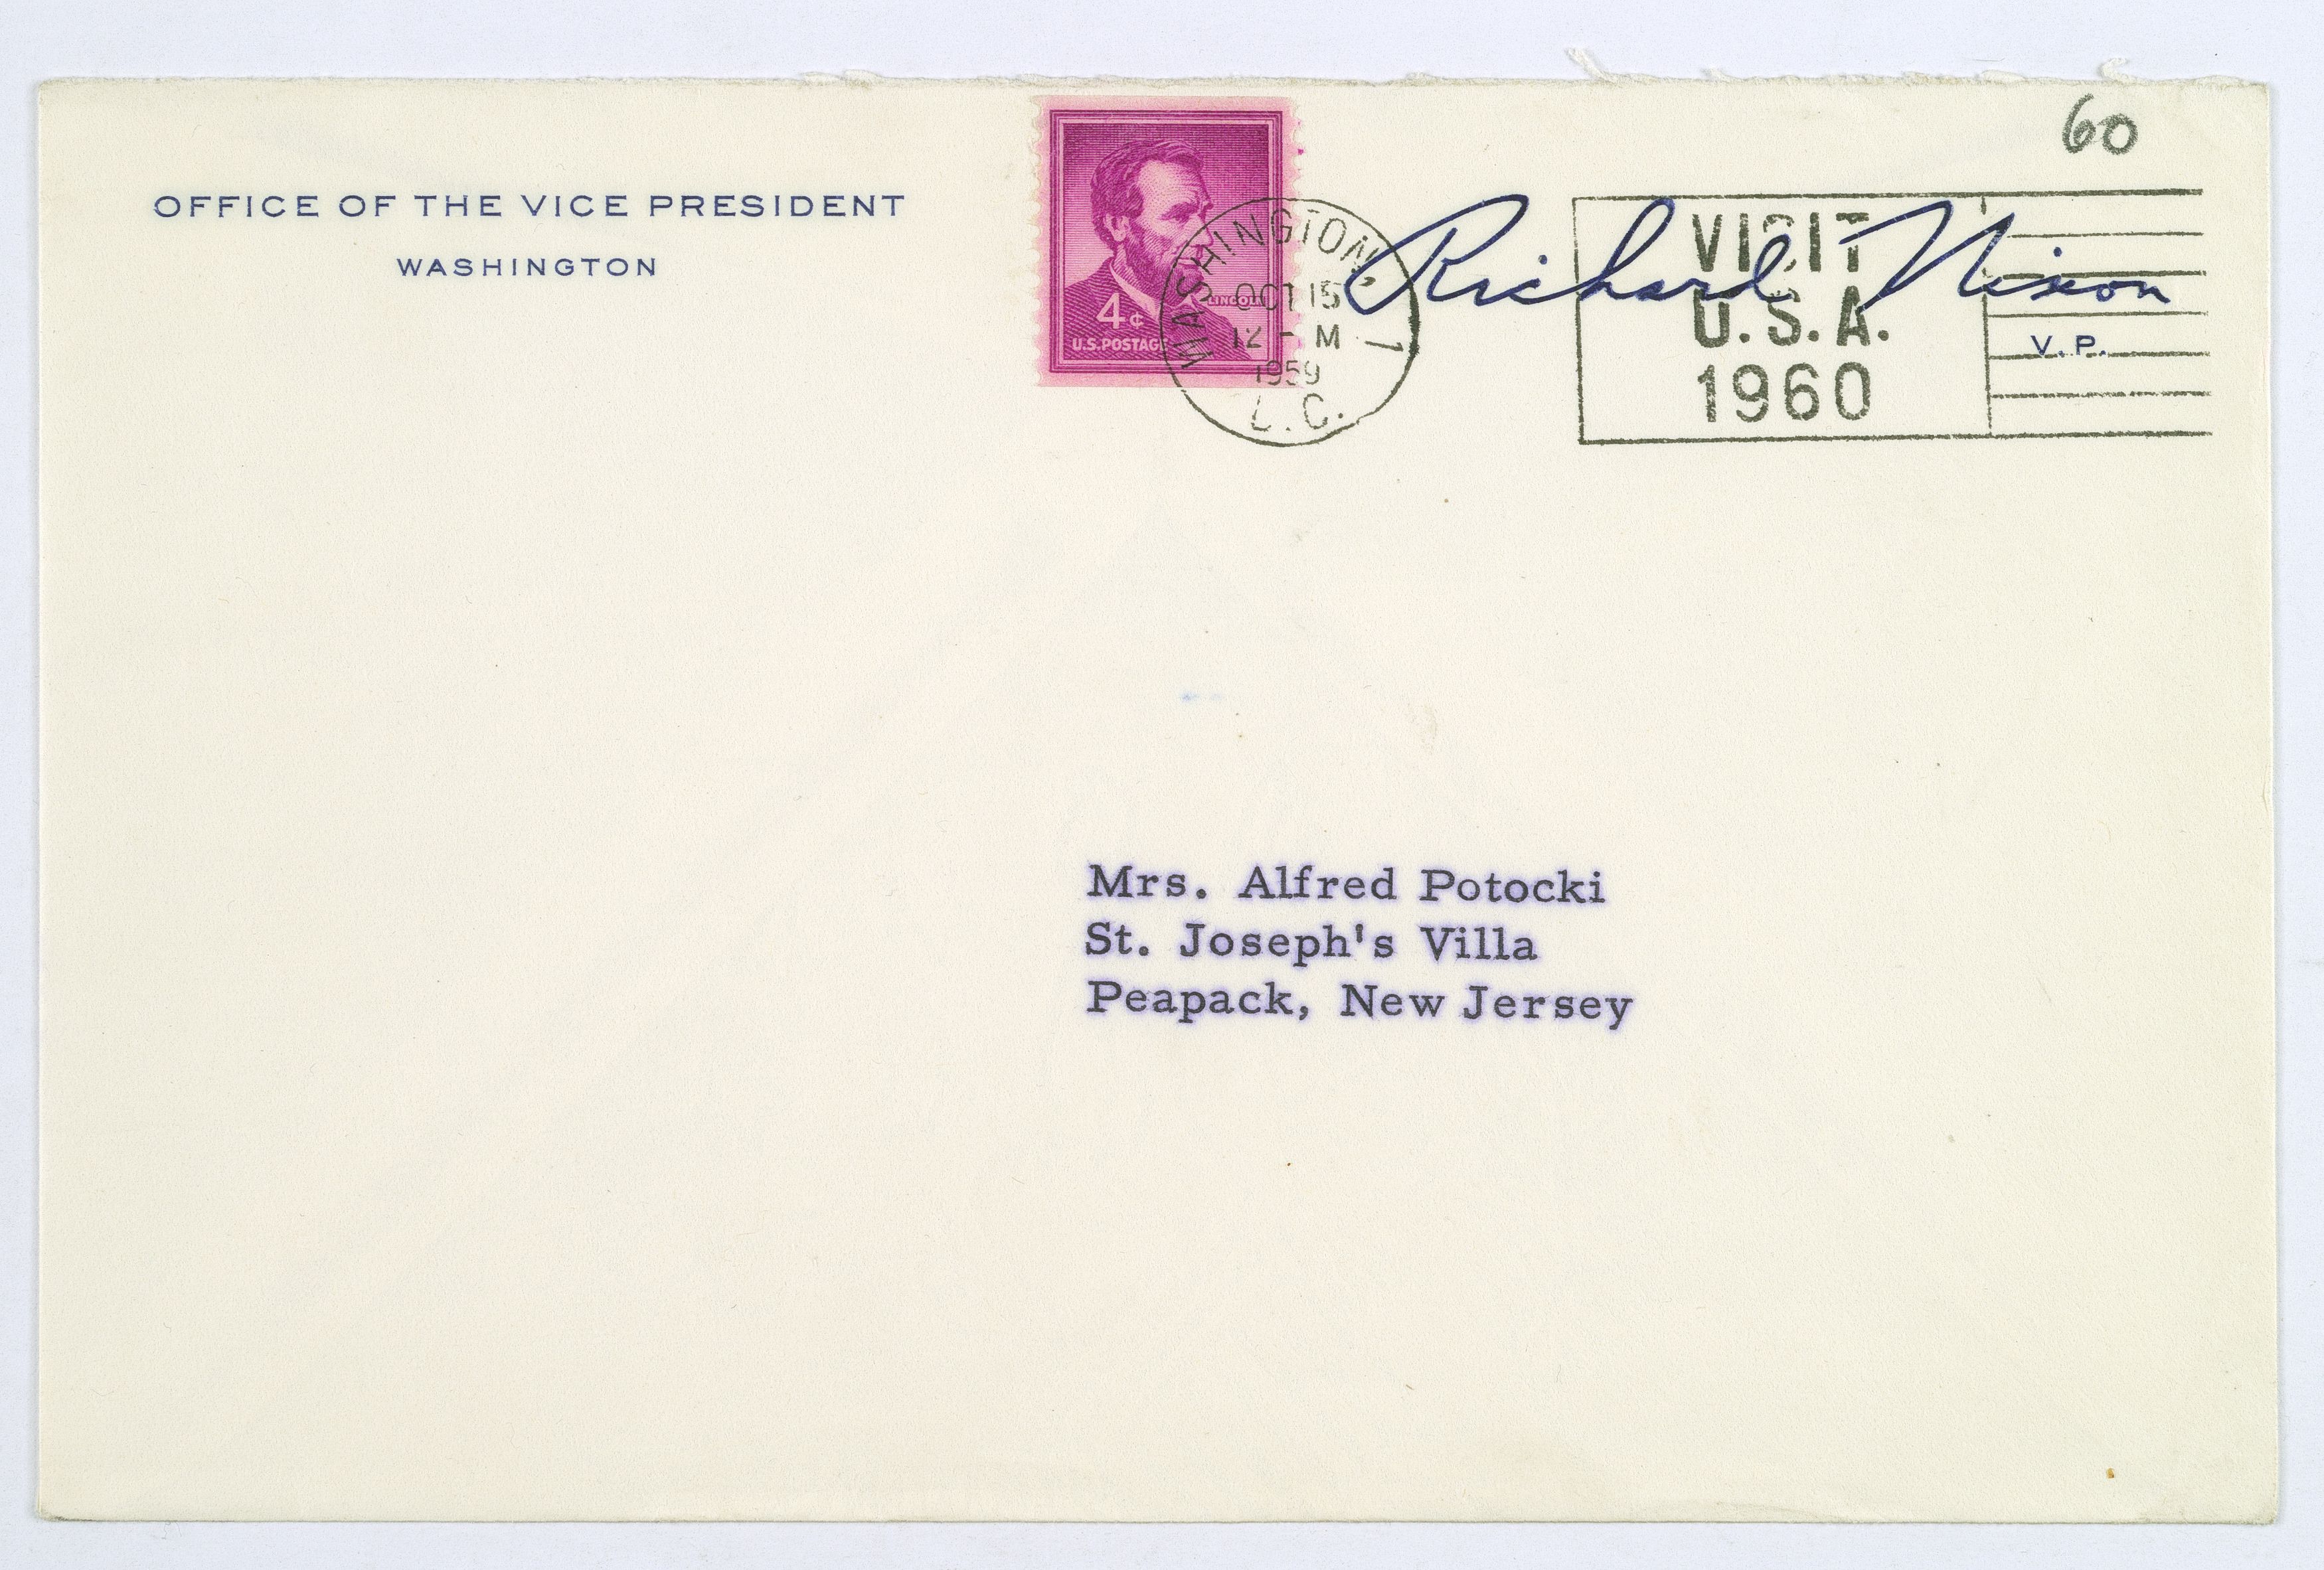 60
OFFICE OF THE VICE PRESIDENT
WASHINGTON
LINCOLN
4¢
U.S.POSTAGE
WASHINGTON, 1
OCT 15
12 - M
1959
D.C.
Richard Nixon
V.P.
VISIT
U.S.A.
1960
Mrs. Alfred Potocki
St. Joseph's Villa
Peapack, New Jersey